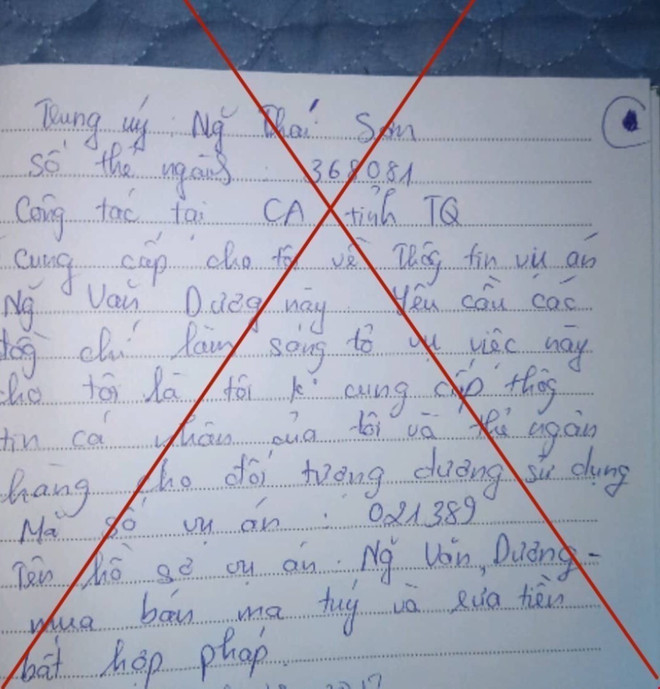 Trung uý : Ng̃ Thái Sơn
Số thẻ ngành : 368081
Công tác tại CA tỉnh TQ
Cung cấp cho tôi về thôg tin vụ án
Ng̃ Văn Dương này. Yêu cầu các
đồg chí làm sáng tỏ vụ việc này
cho tôi là tôi k° cung cấp thôg
tin cá nhân của tôi và thẻ ngân
hàng cho đối tượng dương sử dụng
Mã số vụ án : 021389
Tên hồ sơ vụ án. Ng̃ Văn Dương -
mua bán ma tuý và rửa tiền
bất hợp pháp.